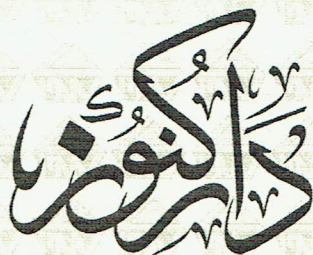 دَار كُنُوز